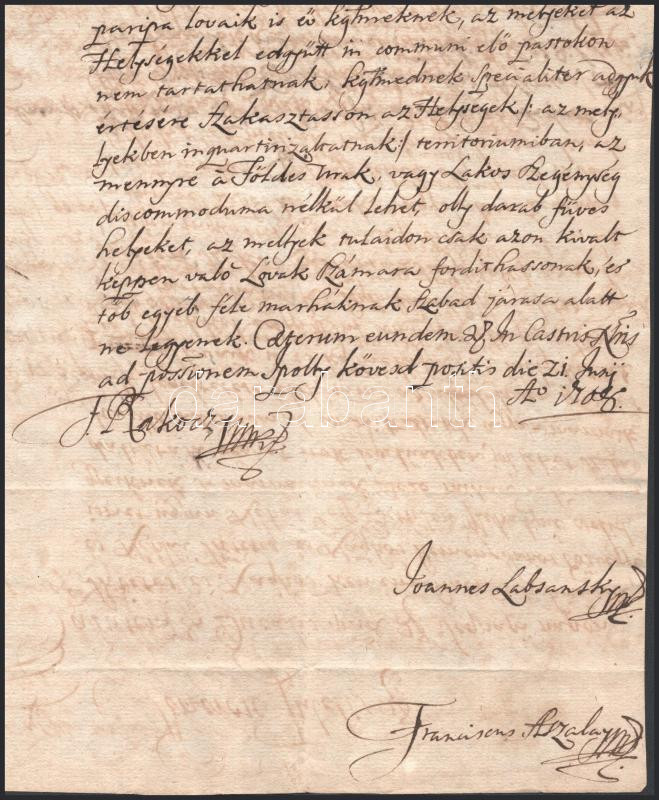 paripa lovaik is ő kglmeknek, az melyeket az
Helységekkel edgyütt in communi elő pastokon
nem tartathatnak, kglmednek specialiter adgyuk
értésére Szakasztasson az Helységek /: az mely,
lyekben inquartirizaltatnak :/ territoriumiban, az
mennyre à Földes Urak, vagy Lakos Szegénység
discommoduma nélkül lehet, olly darab füves
helyeket, az mellyek tulaidon csak azon kivalt
képpen való Lovak számara fordithassonak, és
töb egyéb féle marháknak szabad járasa alatt
ne legyenek. Cæterum eundem &. In Castris Nris
ad possionem Ipoly kövesd positis die 21. Junÿ
Ao 1706.
F Rakoczi
Joannes Labsansky
Franciscus Aszalay
darabanth